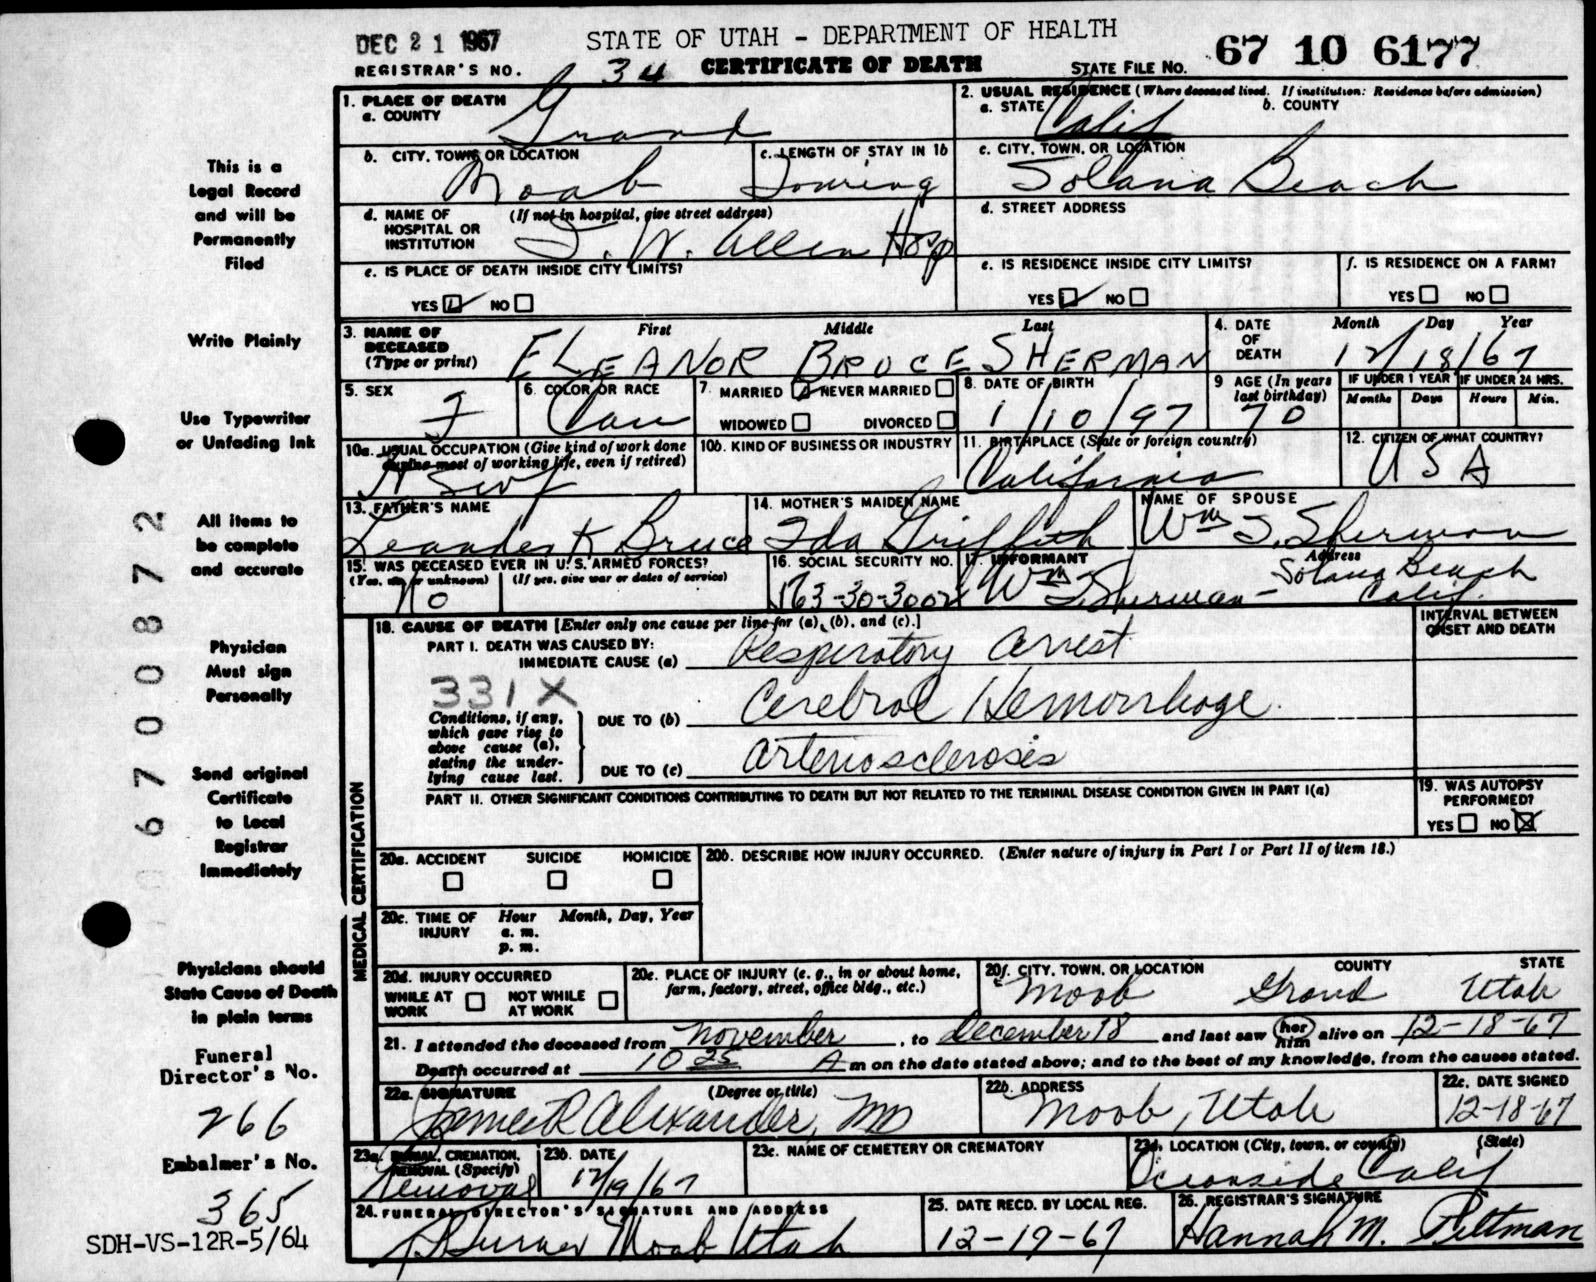 DEC 21 1967
STATE OF UTAH - DEPARTMENT OF HEALTH
REGISTRAR'S NO. 34 CERTIFICATE OF DEATH STATE FILE NO. 67 10 6177
This is a
Legal Record
and will be
Permanently
Filed
Write Plainly
Use Typewriter
or Unfading Ink
All items to
be complete
and accurate
Physician
Must sign
Personally
Send original
Certificate
to Local
Registrar
Immediately
Physicians should
State Cause of Death
in plain terms
Funeral
Director's No.
266
Embalmer's No.
365
SDH-VS-12R-5/64
0 6700872
1. PLACE OF DEATH
a. COUNTY
Grand
2. USUAL RESIDENCE (Where deceased lived. If institution: Residence before admission)
a. STATE Calif b. COUNTY
b. CITY, TOWN, OR LOCATION
Moab
c. LENGTH OF STAY IN 1b
Touring
c. CITY, TOWN, OR LOCATION
Solana Beach
d. NAME OF HOSPITAL OR INSTITUTION
(If not in hospital, give street address)
I. W. Allen Hosp
d. STREET ADDRESS
e. IS PLACE OF DEATH INSIDE CITY LIMITS?
YES NO
e. IS RESIDENCE INSIDE CITY LIMITS?
YES NO
f. IS RESIDENCE ON A FARM?
YES NO
3. NAME OF DECEASED (Type or print)
First Middle Last
ELEANOR BRUCE SHERMAN
4. DATE OF DEATH
Month Day Year
12/18/67
5. SEX
F
6. COLOR OR RACE
Cau
7. MARRIED NEVER MARRIED
WIDOWED DIVORCED
8. DATE OF BIRTH
1/10/97
9 AGE (In years last birthday)
70
IF UNDER 1 YEAR IF UNDER 24 HRS.
Months Days Hours Min.
10a. USUAL OCCUPATION (Give kind of work done during most of working life, even if retired)
H Swf
10b. KIND OF BUSINESS OR INDUSTRY
11. BIRTHPLACE (State or foreign country)
California
12. CITIZEN OF WHAT COUNTRY?
USA
13. FATHER'S NAME
Leander K Bruce
14. MOTHER'S MAIDEN NAME
Ida Griffith
NAME OF SPOUSE
Wm J. Sherman
15. WAS DECEASED EVER IN U.S. ARMED FORCES?
(Yes, no, or unknown) (If yes, give war or dates of service)
No
16. SOCIAL SECURITY NO.
163-30-3002
17. INFORMANT Address
Wm J. Sherman - Solana Beach Calif.
18. CAUSE OF DEATH [Enter only one cause per line for (a), (b), and (c).]
INTERVAL BETWEEN ONSET AND DEATH
PART I. DEATH WAS CAUSED BY:
IMMEDIATE CAUSE (a) Respiratory Arrest
331X
Conditions, if any, which gave rise to above cause (a), stating the underlying cause last.
DUE TO (b) Cerebral Hemorrhage.
DUE TO (c) Arteriosclerosis
PART II. OTHER SIGNIFICANT CONDITIONS CONTRIBUTING TO DEATH BUT NOT RELATED TO THE TERMINAL DISEASE CONDITION GIVEN IN PART I(a)
19. WAS AUTOPSY PERFORMED?
YES NO
MEDICAL CERTIFICATION
20a. ACCIDENT SUICIDE HOMICIDE
20b. DESCRIBE HOW INJURY OCCURRED. (Enter nature of injury in Part I or Part II of item 18.)
20c. TIME OF INJURY Hour Month, Day, Year
a. m.
p. m.
20d. INJURY OCCURRED
WHILE AT WORK NOT WHILE AT WORK
20e. PLACE OF INJURY (e. g., in or about home, farm, factory, street, office bldg., etc.)
20f. CITY, TOWN, OR LOCATION COUNTY STATE
Moab Grand Utah
21. I attended the deceased from November, to December 18 and last saw her him alive on 12-18-67
Death occurred at 10 25 A m on the date stated above; and to the best of my knowledge, from the causes stated.
22a. SIGNATURE (Degree or title)
James R Alexander, MD
22b. ADDRESS
Moab, Utah
22c. DATE SIGNED
12-18-67
23a. BURIAL, CREMATION, REMOVAL (Specify)
Removal
23b. DATE
12/19/67
23c. NAME OF CEMETERY OR CREMATORY
23d. LOCATION (City, town, or county) (State)
Oceanside Calif
24. FUNERAL DIRECTOR'S SIGNATURE AND ADDRESS
Moab Utah
25. DATE RECD. BY LOCAL REG.
12-19-67
26. REGISTRAR'S SIGNATURE
Hannah M. Pittman